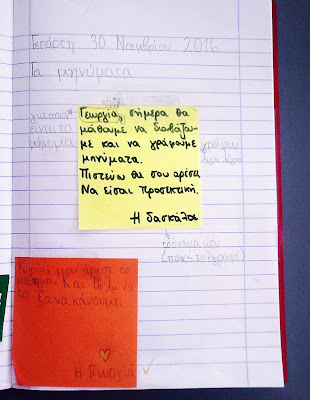 Τετάρτη 30 Νοεμβρίου 2016
Τα μηνύματα
Γεωργία, σήμερα θα
μάθουμε να διαβάζου-
με και να γράφουμε
μηνύματα.
Πιστεύω θα σου αρέσει
Να είσαι προσεκτική.
Η δασκάλα
για ποιον
είναι το
μήνυμα
γράφω
λίγα λόγια
το όνομα μου
(ποιος το έγραψε)
Κυρία μου άρεσε το
μάθημα. Και θέλω να
το ξανακάνουμε.
Η Γεωργία